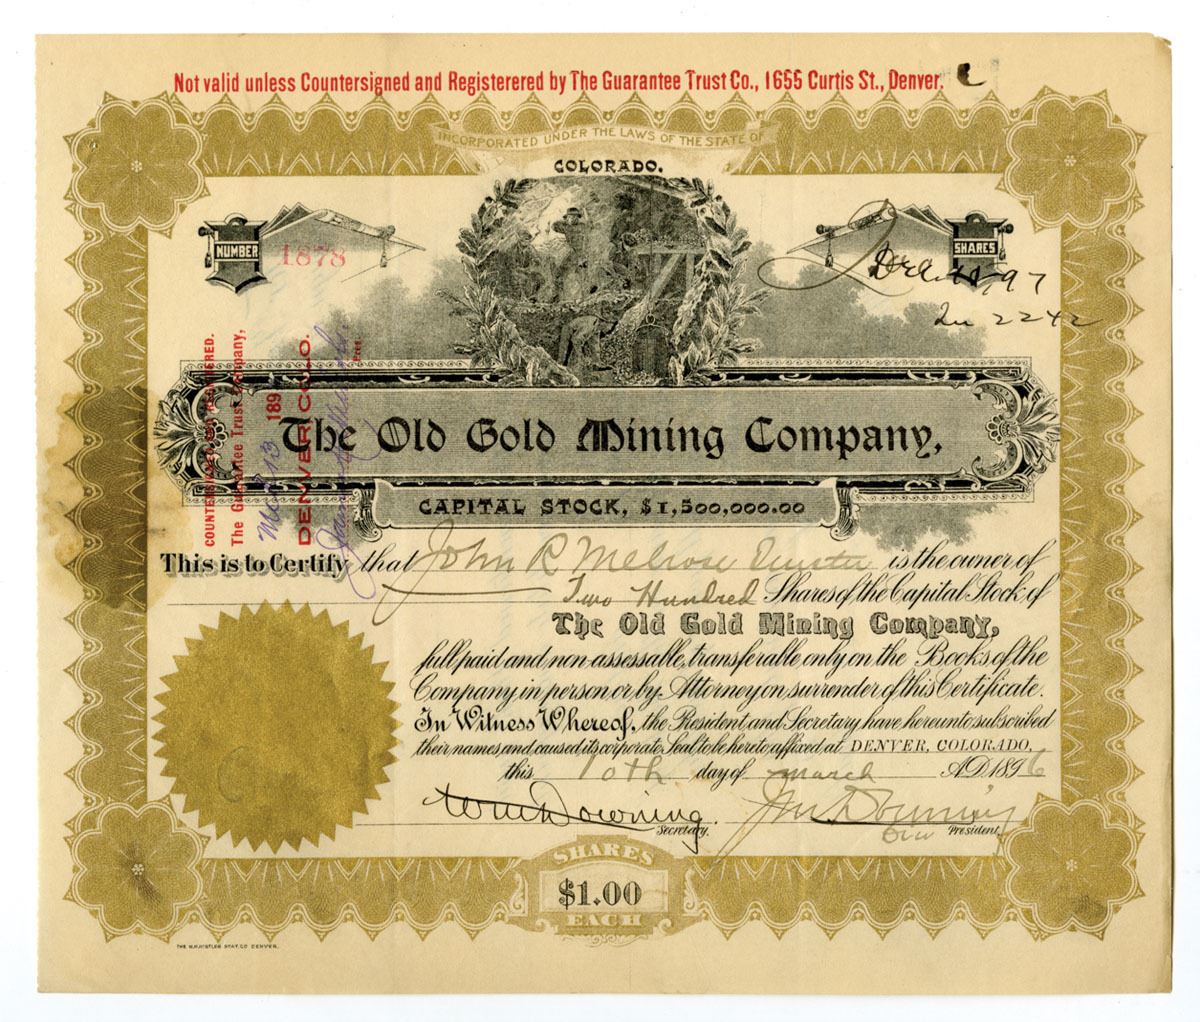 Not valid unless Countersigned and Registerered by The Guarantee Trust Co., 1655 Curtis St., Denver.
INCORPORATED UNDER THE LAWS OF THE STATE OF
COLORADO.
NUMBER
1878
SHARES
97
2242
COUNTERSIGNED AND REGISTERED.
The Guarantee Trust Company,
13 189
DENVER COLO.
Pres.
The Old Gold Mining Company,
CAPITAL STOCK, $1,500,000.00
This is to Certify that John R Melrose Trustee is the owner of
Two Hundred Shares of the Capital Stock of
The Old Gold Mining Company,
full paid and non-assessable, transferable only on the Books of the
Company in person or by Attorney on surrender of this Certificate.
In Witness Whereof, the President and Secretary have hereunto subscribed
their names and caused its corporate Seal to be hereto affixed at DENVER, COLORADO,
this 10th day of March A.D. 1896
Wm Downing. Secretary. Jno Downing President
SHARES
$1.00
EACH